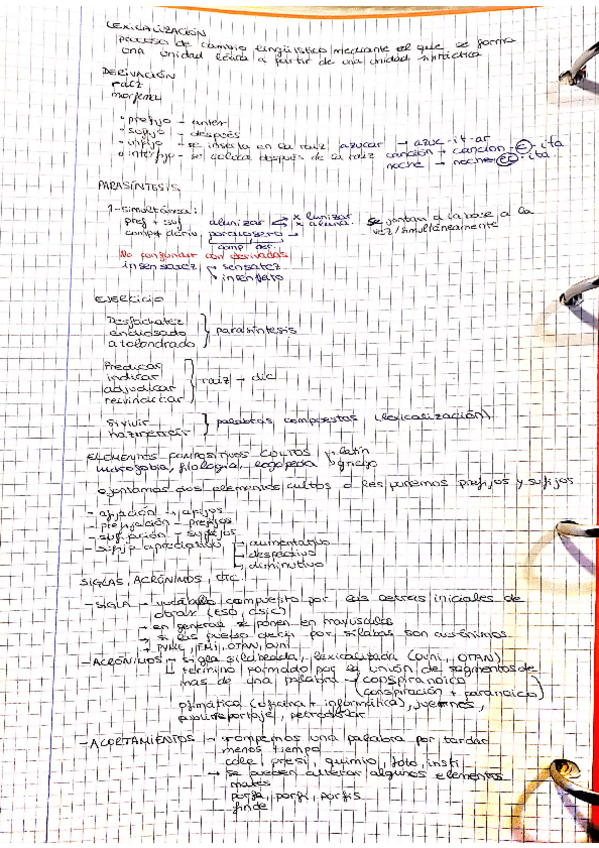 LEXICALIZACIÓN
proceso de cambio lingüístico mediante el que se forma
una unidad léxica a partir de una unidad sintáctica
DERIVACIÓN
raíz
morfema
• prefijo - antes
• sufijo - después
• infijo - se inserta en la raíz, azucar → azuc-it-ar
• interfijo - se coloca después de la raíz canción → cancion-e-ita
noche → noche-ec-ita
PARASÍNTESIS
1-simultánea:
pref + suf alunizar x lunizar se juntan a la base a la
comp + deriv. pordiosero x aluna. vez/simultáneamente
comp der.
No confundir con derivadas
insensatez sensatez
insensato
EJERCICIO
Desfachatez
endiosado } parasíntesis
atolondrado
Predicar
indicar
adjudicar } raíz - dic
reivindicar
palabras compuestas (lexicalización)
ELEMENTOS COMPOSITIVOS CULTOS latín
filología, logopeda griego
o juntamos dos elementos cultos o les ponemos prefijos y sufijos
- afijación → afijos
- prefijación - prefijos
- sufijación - sufijos
- sufijo apreciativo → aumentativo
→ despectivo
→ diminutivo
SIGLAS, ACRÓNIMOS, etc.
- SIGLA → vocablo compuesto por las letras iniciales de
(ESO, CSIC)
→ en general se ponen en mayúsculas
→ si las puedo decir por sílabas son acrónimos
→ PYME, FMI, OTAN, ovni
- ACRÓNIMOS → sigla silabeada, lexicalizada (ovni, OTAN)
término formado por la unión de segmentos de
más de una palabra → conspiranoico
(conspiración + paranoico)
ofimática (oficina + informática), juernes,
publirreportaje,
- ACORTAMIENTOS → rompemos una palabra por tardar
menos tiempo
cole, presi, quimio, foto, insti
→ se pueden alterar algunos elementos
mates
porfa, porfi, porfis
finde